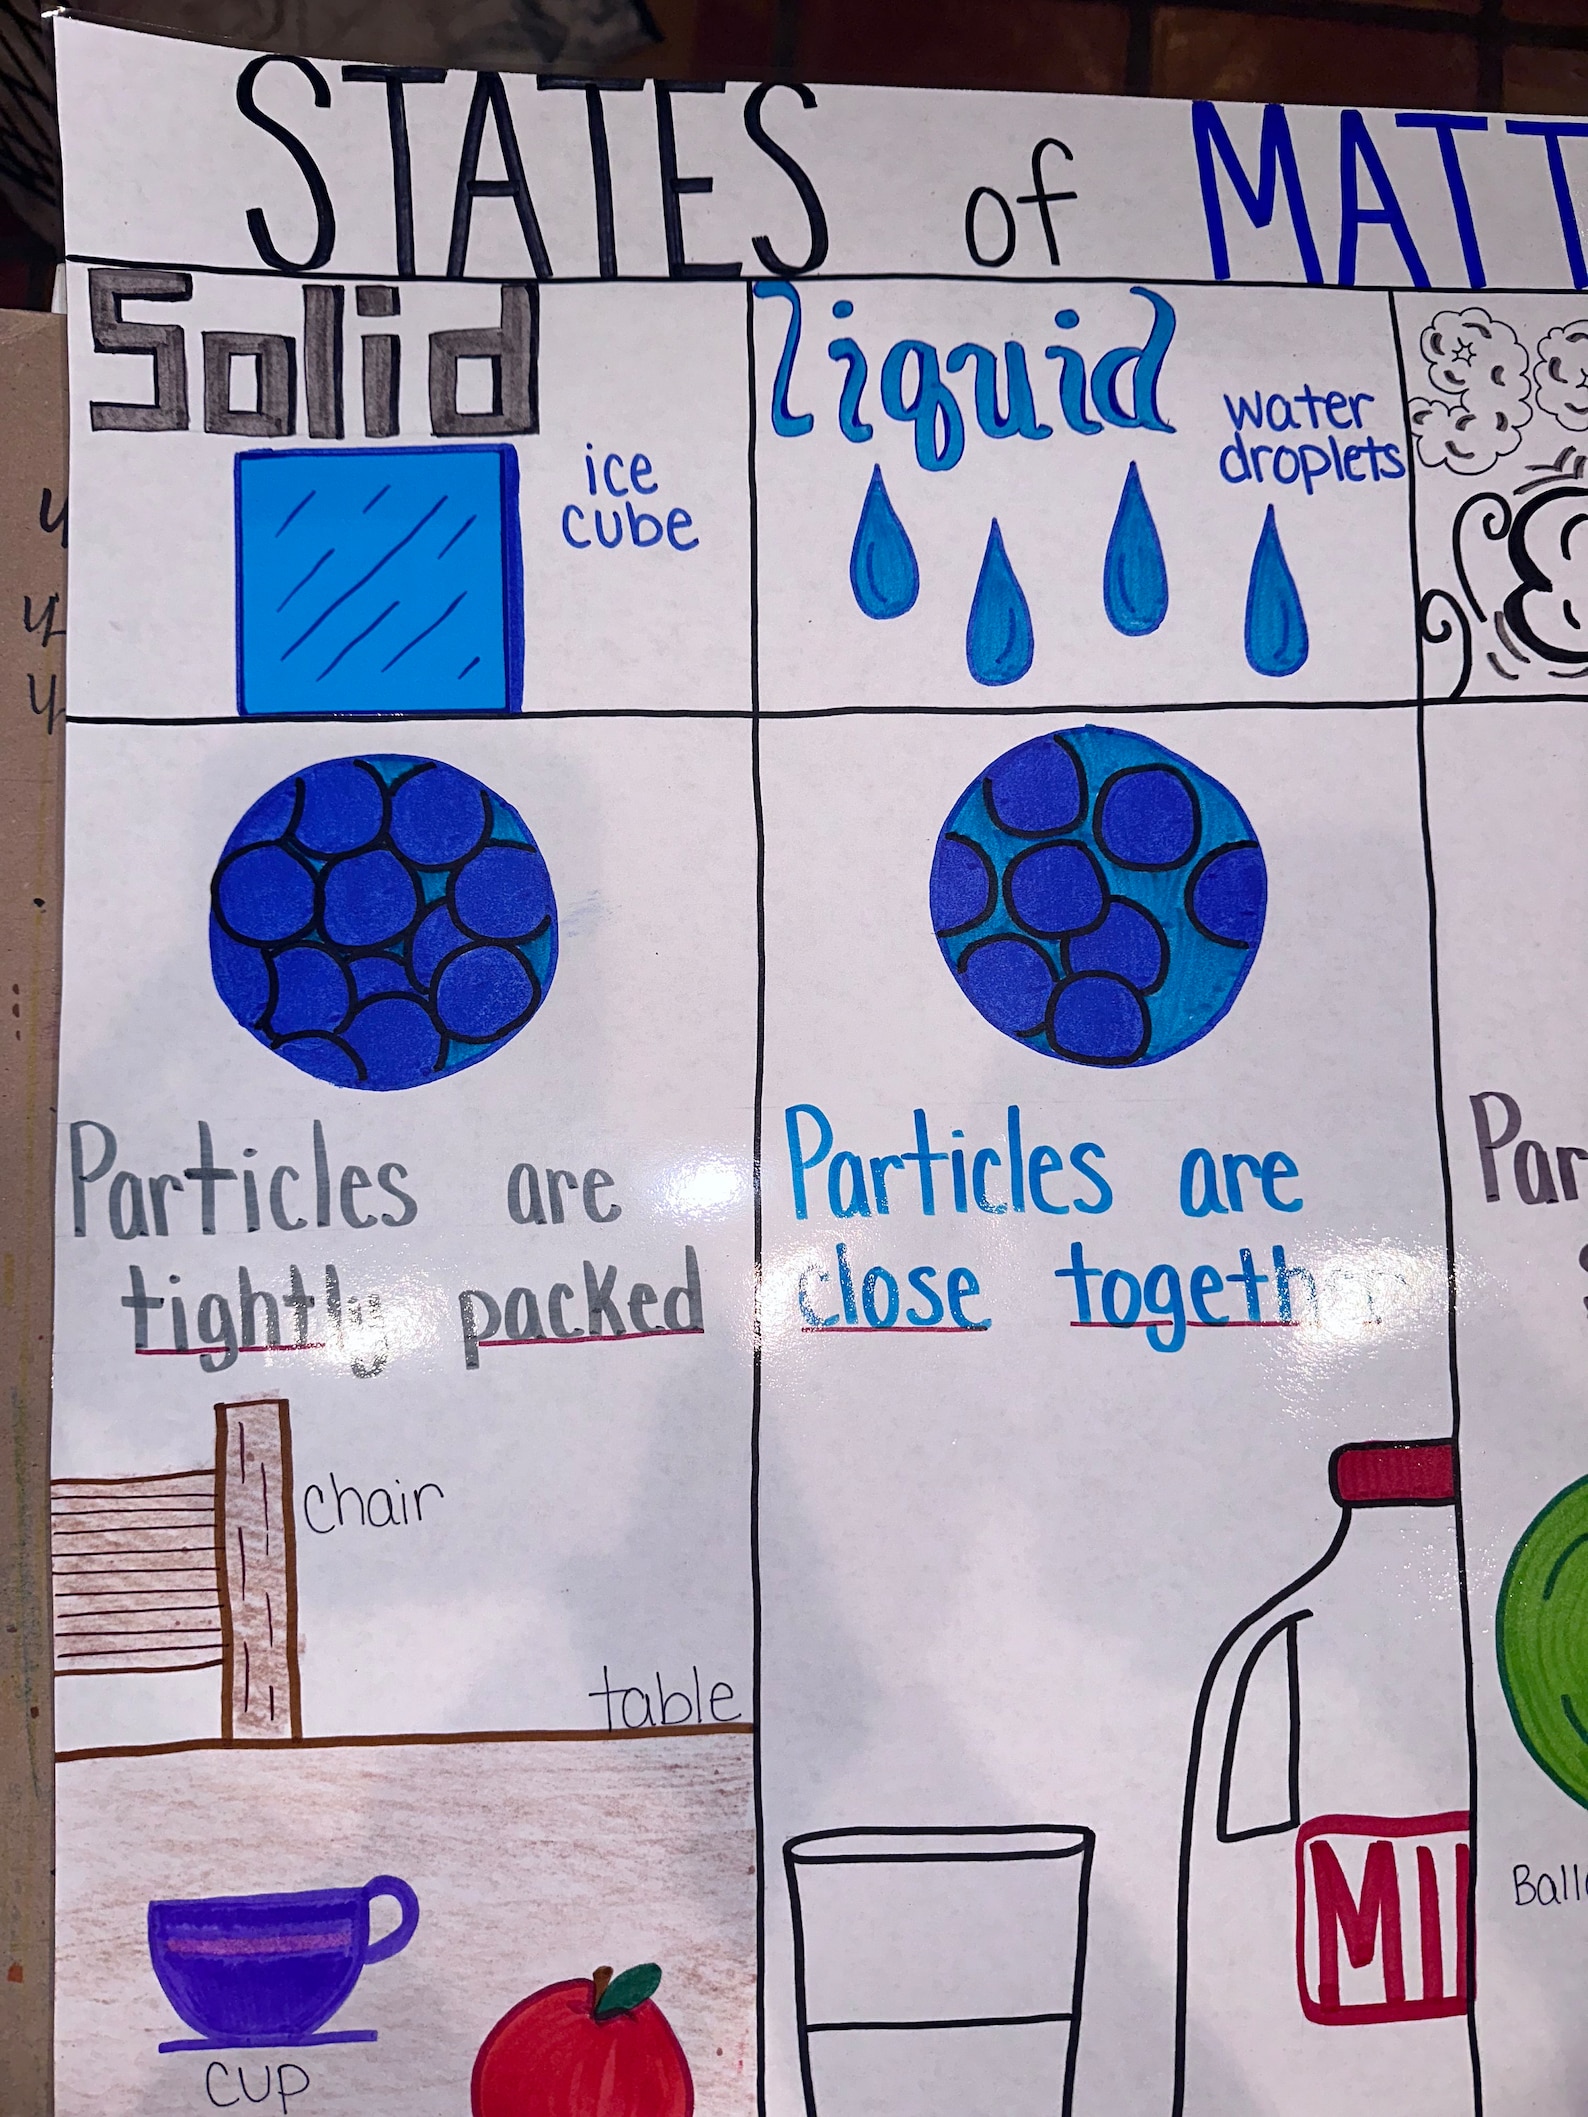 STATES of MATT
Solid
ice
cube
Particles are
tightly packed
chair
table
cup
liquid
water
droplets
Particles are
close together
MI
Par
Ball